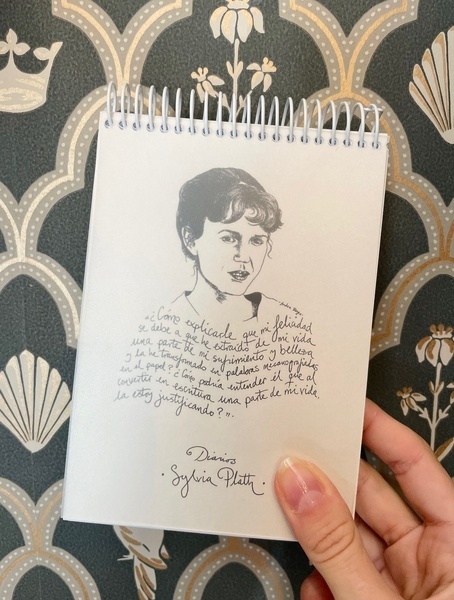 «¿Cómo explicarle que mi felicidad
se debe a que he extraído de mi vida
una parte de mi sufrimiento y belleza
y la he transformado en palabras mecanografiadas
en el papel? ¿Cómo podría entender él que al
convertir en escritura una parte de mi vida,
la estoy justificando?».
Diarios
· Sylvia Plath ·